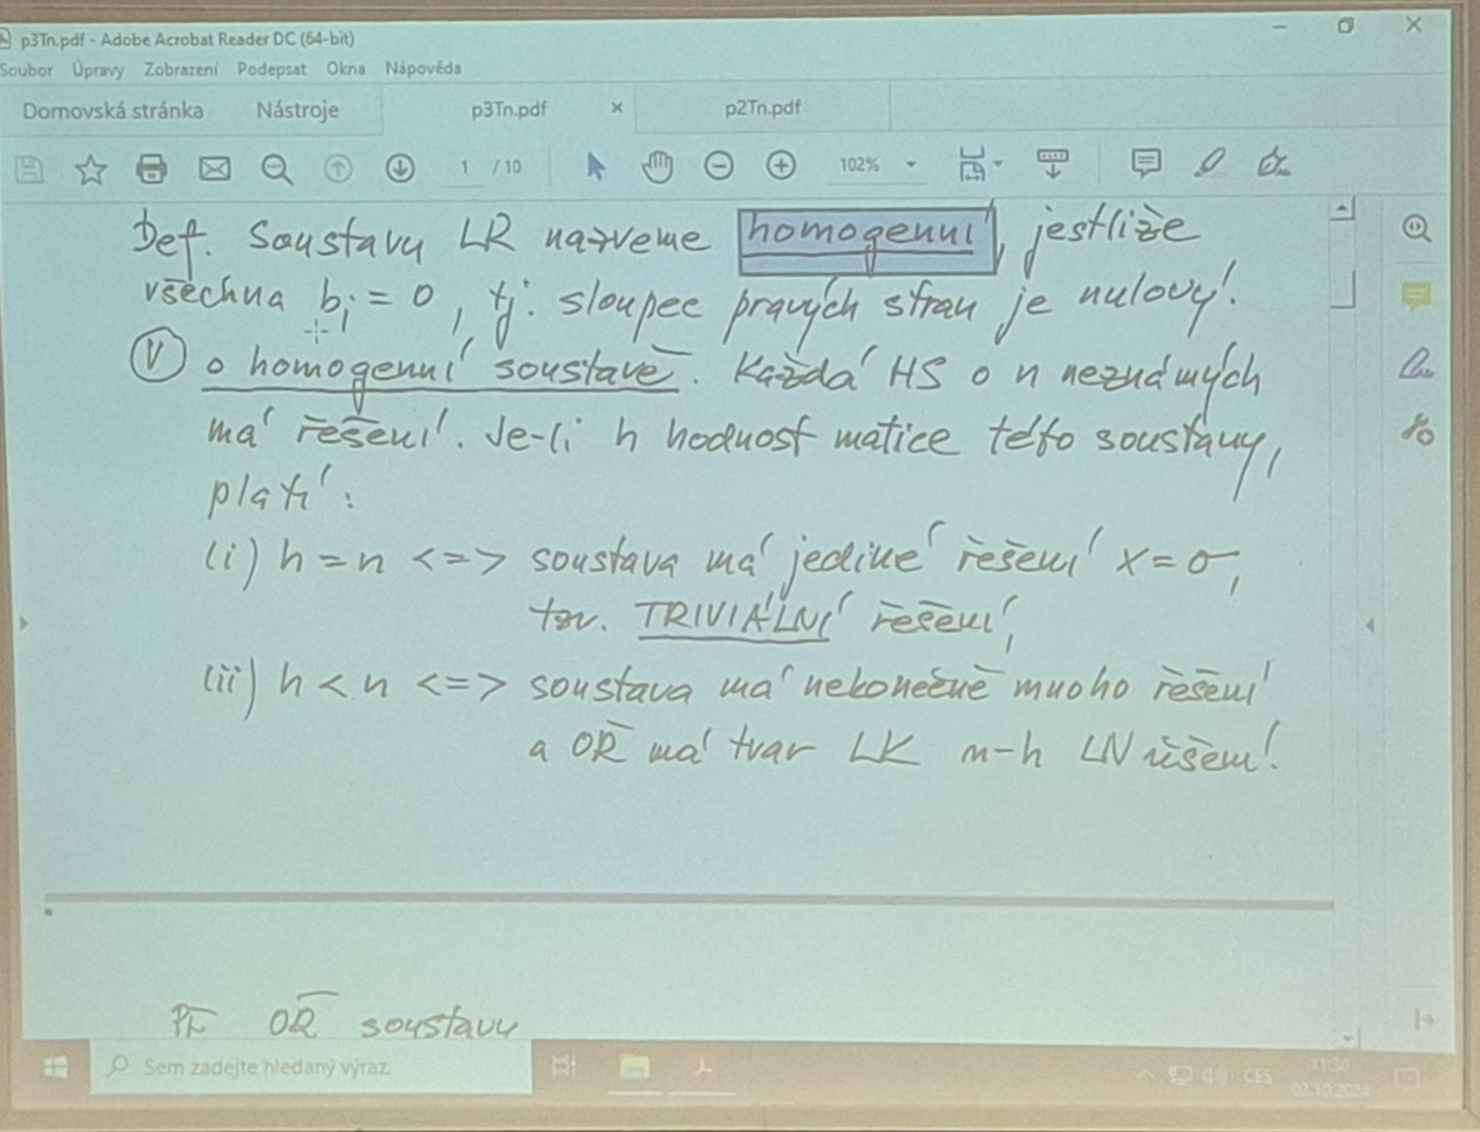 p3Tn.pdf - Adobe Acrobat Reader DC (64-bit)
Soubor Úpravy Zobrazení Podepsat Okna Nápověda
Domovská stránka Nástroje p3Tn.pdf × p2Tn.pdf
1 / 10 102%
Def. Soustavu LR nazveme homogenní, jestliže
všechna bᵢ = 0, tj. sloupec pravých stran je nulový.
(V) o homogenní soustavě. Každá HS o n neznámých
má řešení. Je-li h hodnost matice této soustavy,
platí:
(i) h = n <=> soustava má jediné řešení x = σ,
tzv. TRIVIÁLNÍ řešení,
(ii) h < n <=> soustava má nekonečně mnoho řešení
a OŘ má tvar LK n-h LN řešení.
Př OŘ soustavy
Sem zadejte hledaný výraz.
CES
11:30
02.10.2024